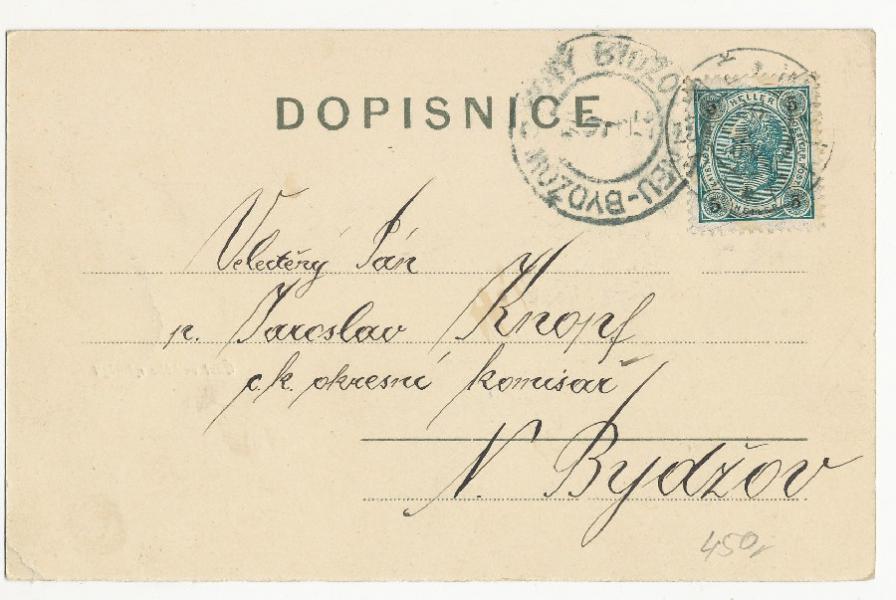 DOPISNICE
NOVÝ BYDŽO
NEU-BYDŽOW
5 HELLER 5
5 HELLER 5
Veleděný Pán
p. Jaroslav Knopf
c. k. okresní komisař
N. Bydžov
450,